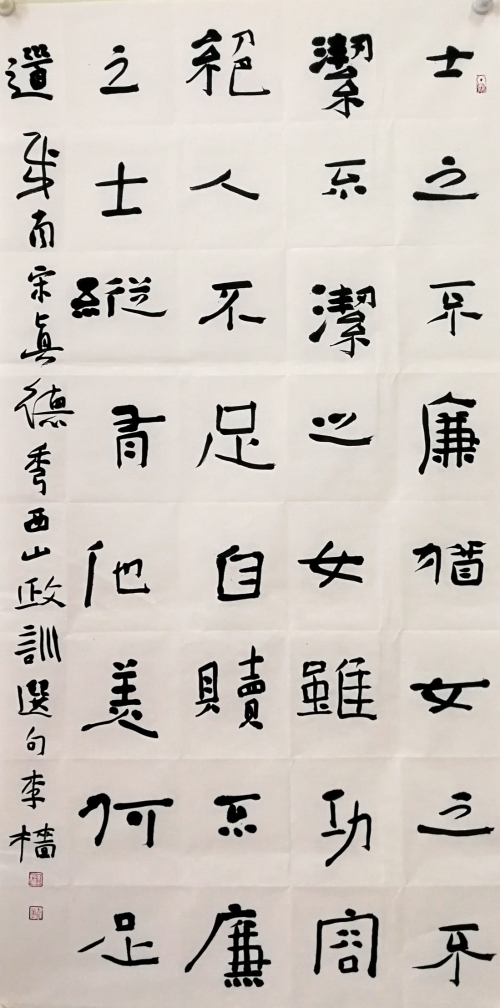 士之不廉猶女之不
潔不潔之女雖功容
絕人不足自贖不廉
之士縱有他美何足
道 南宋真德秀西山政訓選句李檣